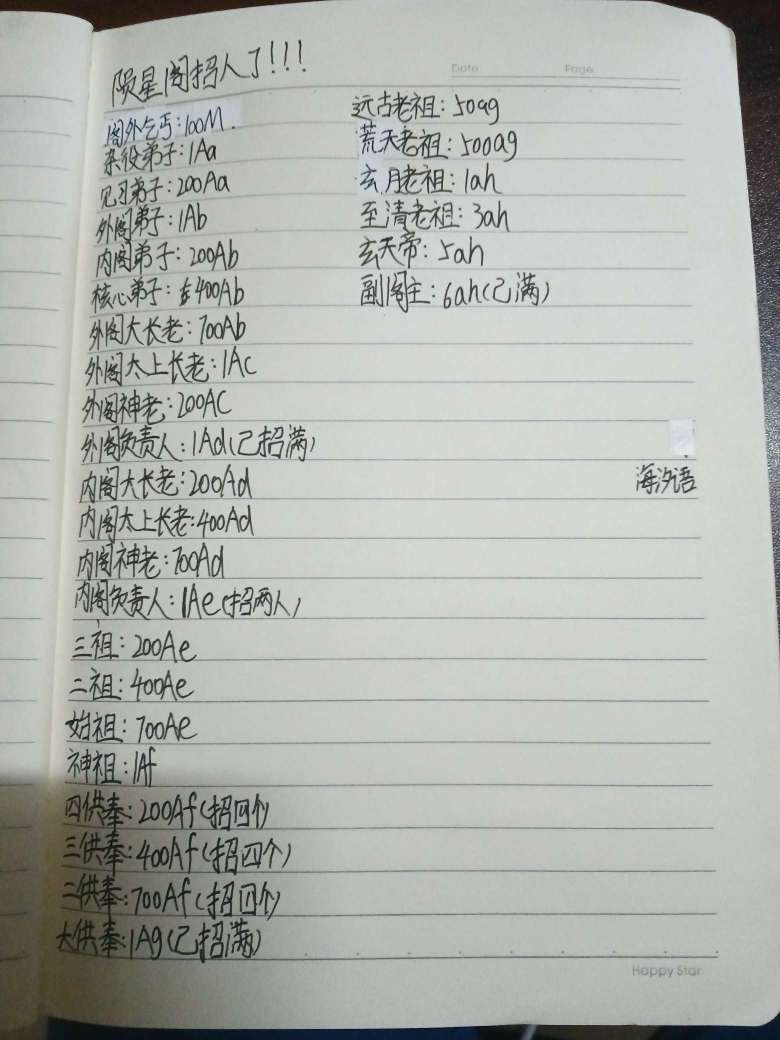 陨星阁招人了!!!
Date
Page
阁外乞丐:100M.
杂役弟子:1Aa
见习弟子:200Aa
外阁弟子:1Ab
内阁弟子:200Ab
核心弟子:400Ab
外阁大长老:700Ab
外阁太上长老:1Ac
外阁神老:200AC
外阁负责人:1Ad(已招满)
内阁大长老:200Ad
内阁太上长老:400Ad
内阁神老:700Ad
内阁负责人:1Ae(招两人)
三祖:200Ae
二祖:400Ae
始祖:700Ae
神祖:1Af
四供奉:200Af(招四个)
三供奉:400Af(招四个)
二供奉:700Af(招四个)
大供奉:1Ag(已招满)
远古老祖:50ag
荒天老祖:500ag
玄月老祖:1ah
至清老祖:3ah
玄天帝:5ah
副阁主:6ah(已满)
海汐语
Happy Star